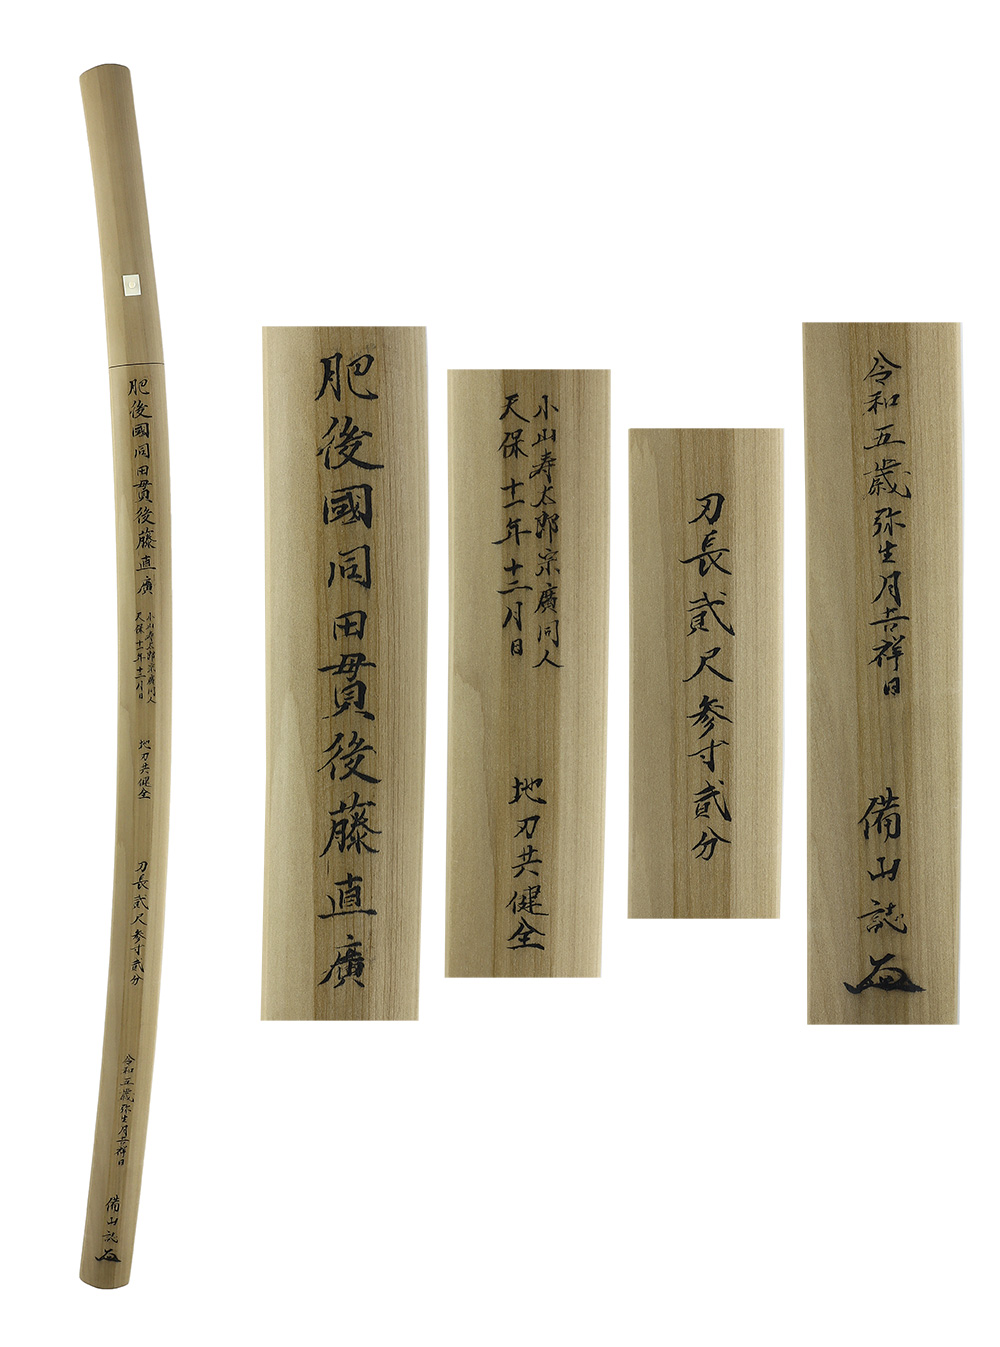 肥後國同田貫後藤直廣
小山寿太郎宗廣同人
天保十一年十二月日
地刃共健全
刃長貳尺参寸貳分
令和五歳弥生月吉祥日
備山誌
肥後國同田貫後藤直廣
小山寿太郎宗廣同人
天保十一年十二月日
地刃共健全
刃長貳尺参寸貳分
令和五歳弥生月吉祥日
備山誌